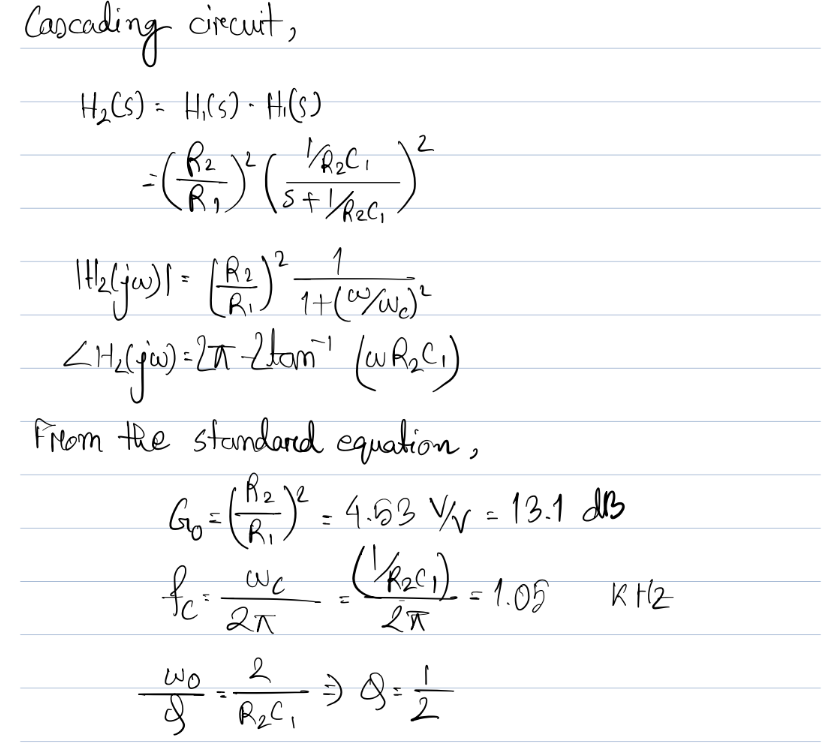 Cascading circuit,
H₂(s) = H₁(s) · H₁(s)
= (R₂/R₁)² ( (1/R₂C₁) / (s + 1/R₂C₁) )²
|H₂(jω)| = (R₂/R₁)² 1 / (1+(ω/ω_c)²)
∠H₂(jω) = 2π - 2tan⁻¹ (ωR₂C₁)
From the standard equation,
G₀ = (R₂/R₁)² = 4.53 V/V = 13.1 dB
f_c = ω_c / 2π = (1/R₂C₁) / 2π = 1.05 KHz
ω₀/Q = 2/(R₂C₁) ⇒ Q = 1/2